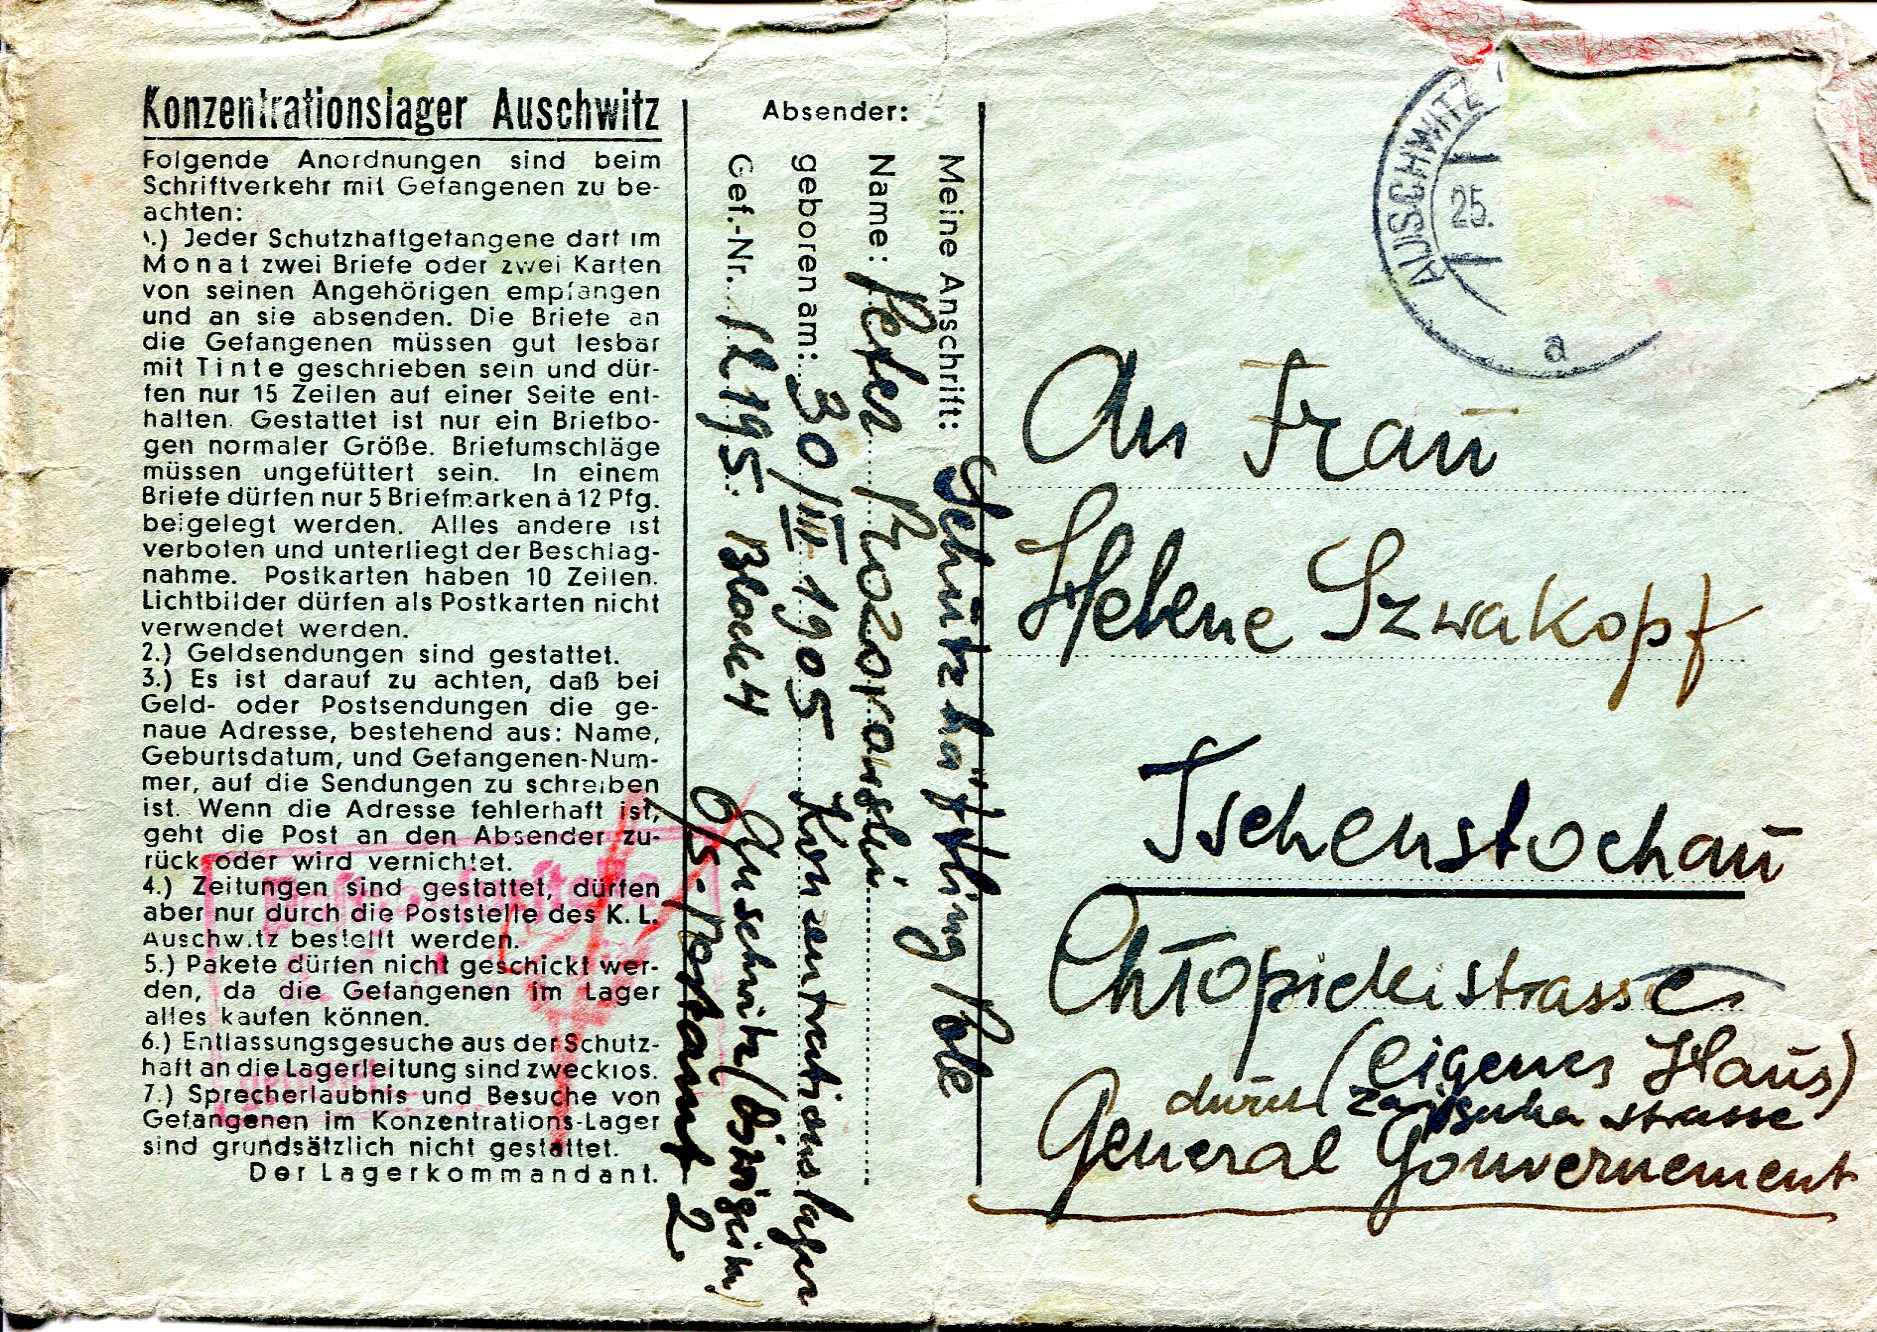 Konzentrationslager Auschwitz
Folgende Anordnungen sind beim
Schriftverkehr mit Gefangenen zu be-
achten:
1.) Jeder Schutzhaftgefangene darf im
Monat zwei Briefe oder zwei Karten
von seinen Angehörigen empfangen
und an sie absenden. Die Briefe an
die Gefangenen müssen gut lesbar
mit Tinte geschrieben sein und dür-
fen nur 15 Zeilen auf einer Seite ent-
halten. Gestattet ist nur ein Briefbo-
gen normaler Größe. Briefumschläge
müssen ungefüttert sein. In einem
Briefe dürfen nur 5 Briefmarken à 12 Pfg.
beigelegt werden. Alles andere ist
verboten und unterliegt der Beschlag-
nahme. Postkarten haben 10 Zeilen.
Lichtbilder dürfen als Postkarten nicht
verwendet werden.
2.) Geldsendungen sind gestattet.
3.) Es ist darauf zu achten, daß bei
Geld- oder Postsendungen die ge-
naue Adresse, bestehend aus: Name,
Geburtsdatum, und Gefangenen-Num-
mer, auf die Sendungen zu schreiben
ist. Wenn die Adresse fehlerhaft ist,
geht die Post an den Absender zu-
rück oder wird vernichtet.
4.) Zeitungen sind gestattet, dürfen
aber nur durch die Poststelle des K. L.
Auschwitz bestellt werden.
5.) Pakete dürfen nicht geschickt wer-
den, da die Gefangenen im Lager
alles kaufen können.
6.) Entlassungsgesuche aus der Schutz-
haft an die Lagerleitung sind zwecklos.
7.) Sprecherlaubnis und Besuche von
Gefangenen im Konzentrations-Lager
sind grundsätzlich nicht gestattet.
Der Lagerkommandant.
Absender:
Meine Anschrift: Schutzhäftling Pole
Name: Peter
geboren am: 30/III 1905 Konzentrationslager
Gef.-Nr. 12195. Block 4 Auschwitz
O/S. Postamt 2
AUSCHWITZ
25.
a
An Frau
Helene Szwakopf
Tschenstochau
Chłopickistrasse
(eigenes Haus)
durch strasse
General Gouvernement